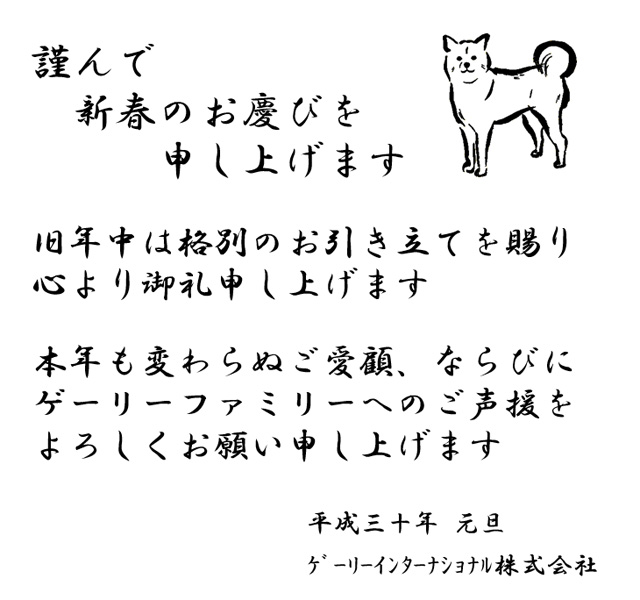 謹んで
新春のお慶びを
申し上げます
旧年中は格別のお引き立てを賜り
心より御礼申し上げます
本年も変わらぬご愛顧、ならびに
ゲーリーファミリーへのご声援を
よろしくお願い申し上げます
平成三十年 元旦
ｹﾞｰﾘｰｲﾝﾀｰﾅｼｮﾅﾙ株式会社